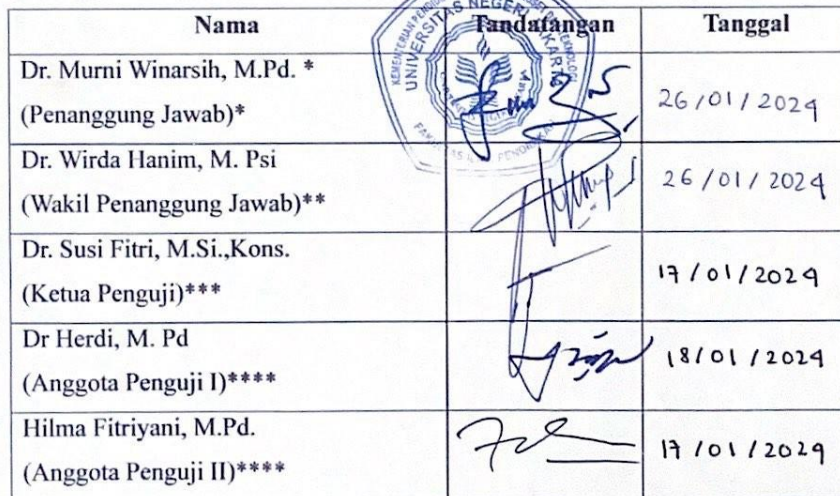 Nama Tandatangan Tanggal
Dr. Murni Winarsih, M.Pd. *
(Penanggung Jawab)*
26/01/2024
Dr. Wirda Hanim, M. Psi
(Wakil Penanggung Jawab)**
26/01/2024
Dr. Susi Fitri, M.Si.,Kons.
(Ketua Penguji)***
17/01/2024
Dr Herdi, M. Pd
(Anggota Penguji I)****
18/01/2024
Hilma Fitriyani, M.Pd.
(Anggota Penguji II)****
17/01/2024
UNIVERSITAS NEGERI JAKARTA